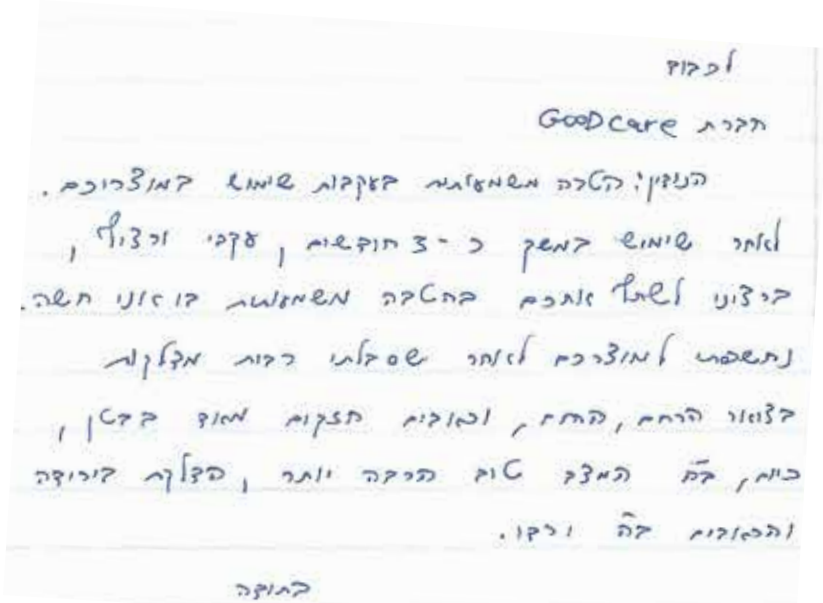 לכבוד
חברת GOODcare
הנידון: הטבה משמעותית בעקבות שימוש במוצריכם.
לאחר שימוש במשך כ-3 חודשים, עקבי ורציף,
ברצוני לשתף אתכם בהטבה משמעותית בו אני חשה.
נחשפתי למוצרכם לאחר שסבלתי רבות מדלקות
בצוואר הרחם, הרחם, וכאבים חזקים מאוד בבטן,
כיום, בה המצב טוב הרבה יותר, הדלקת בירידה
והכאבים בה ירדו.
בתודה